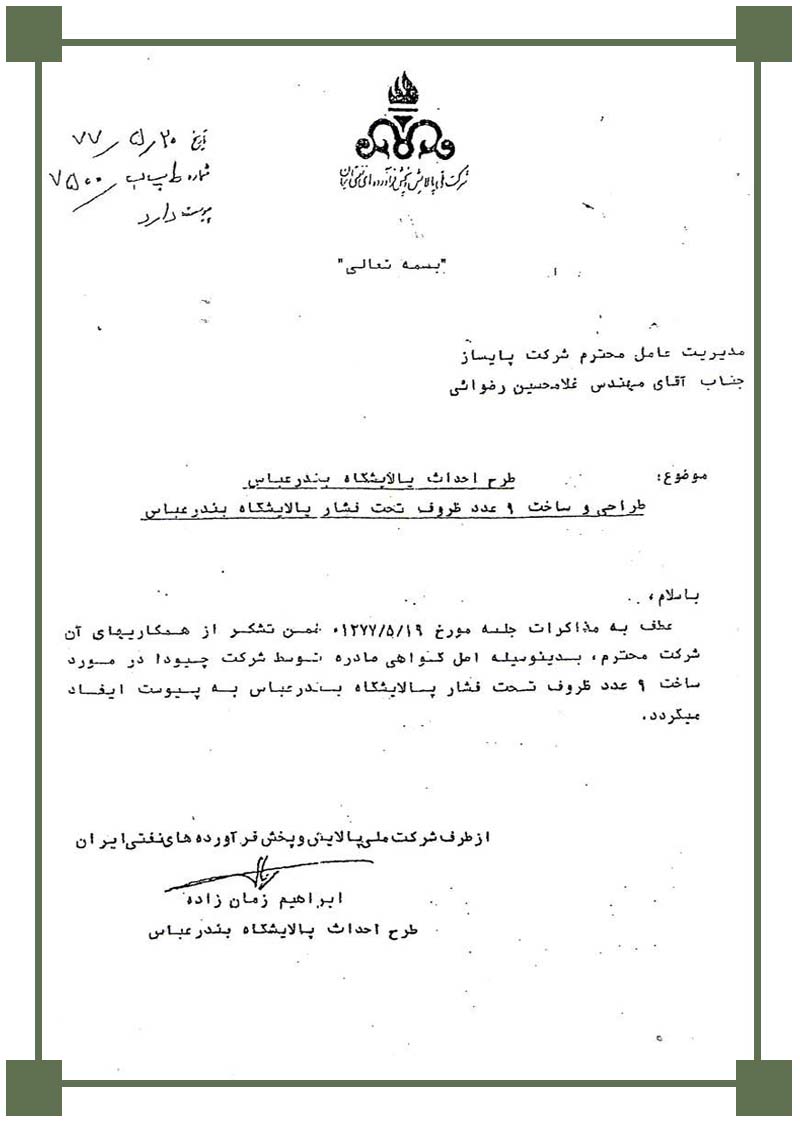 شرکت ملی پالایش و پخش فرآورده‌های نفتی ایران
تاریخ ۷۷/۵/۲۰
شماره ط پ ب ۷۵۰۰
پیوست دارد
"بسمه تعالی"
مدیریت عامل محترم شرکت پایساز
جناب آقای مهندس غلامحسین رضوائی
موضوع: طرح احداث پالایشگاه بندرعباس
طراحی و ساخت ۹ عدد ظروف تحت فشار پالایشگاه بندرعباس
باسلام،
عطف به مذاکرات جلسه مورخ ۱۳۷۷/۵/۱۹ ضمن تشکر از همکاریهای آن
شرکت محترم، بدینوسیله اصل گواهی صادره توسط شرکت چیودا در مورد
ساخت ۹ عدد ظروف تحت فشار پالایشگاه بندرعباس به پیوست ایفاد
میگردد.
ازطرف شرکت ملی پالایش وپخش فرآورده های نفتی ایران
ابراهیم زمان زاده
طرح احداث پالایشگاه بندرعباس